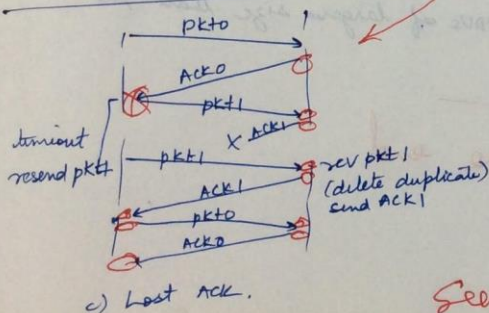 pkt0
ACK0
pkt1
X ACK1
timeout
resend pkt1
pkt1
rcv pkt1
(delete duplicate)
send ACK1
ACK1
pkt0
ACK0
c) Lost ACK.
See